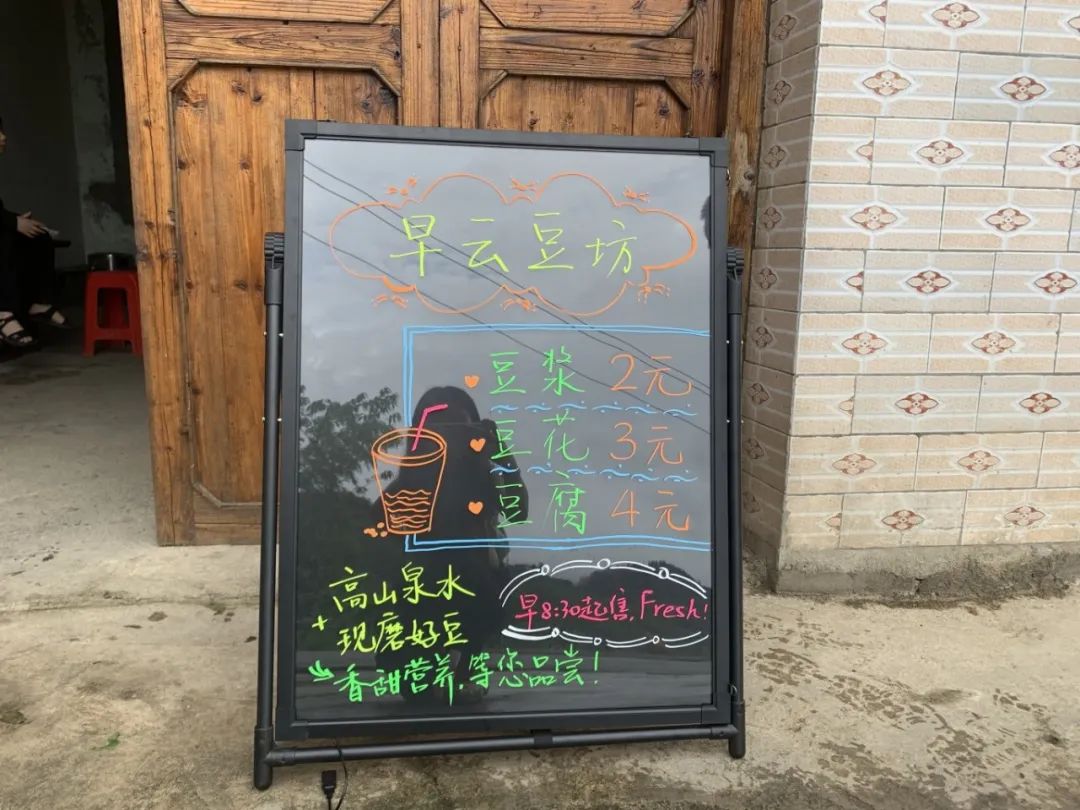 早云豆坊
豆浆 2元
豆花 3元
豆腐 4元
高山泉水
+
现磨好豆
香甜营养,等您品尝!
早8:30起售,Fresh!